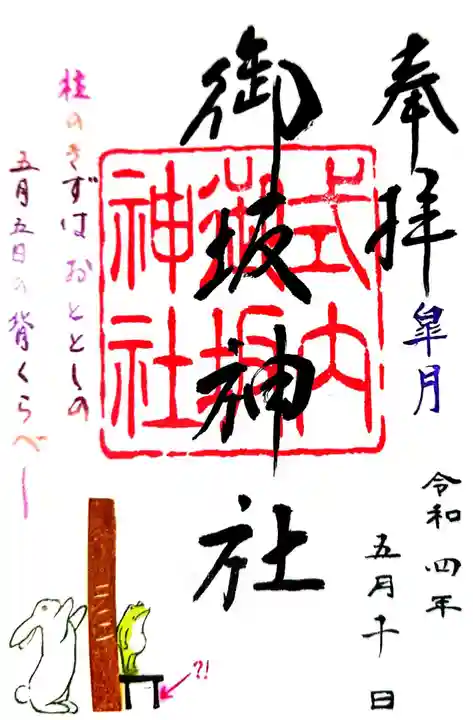 奉拝
皐月
令和四年
五月十日
御坂神社
式内
御坂
神社
柱のきずはおととしの
五月五日の背くらべー
?!